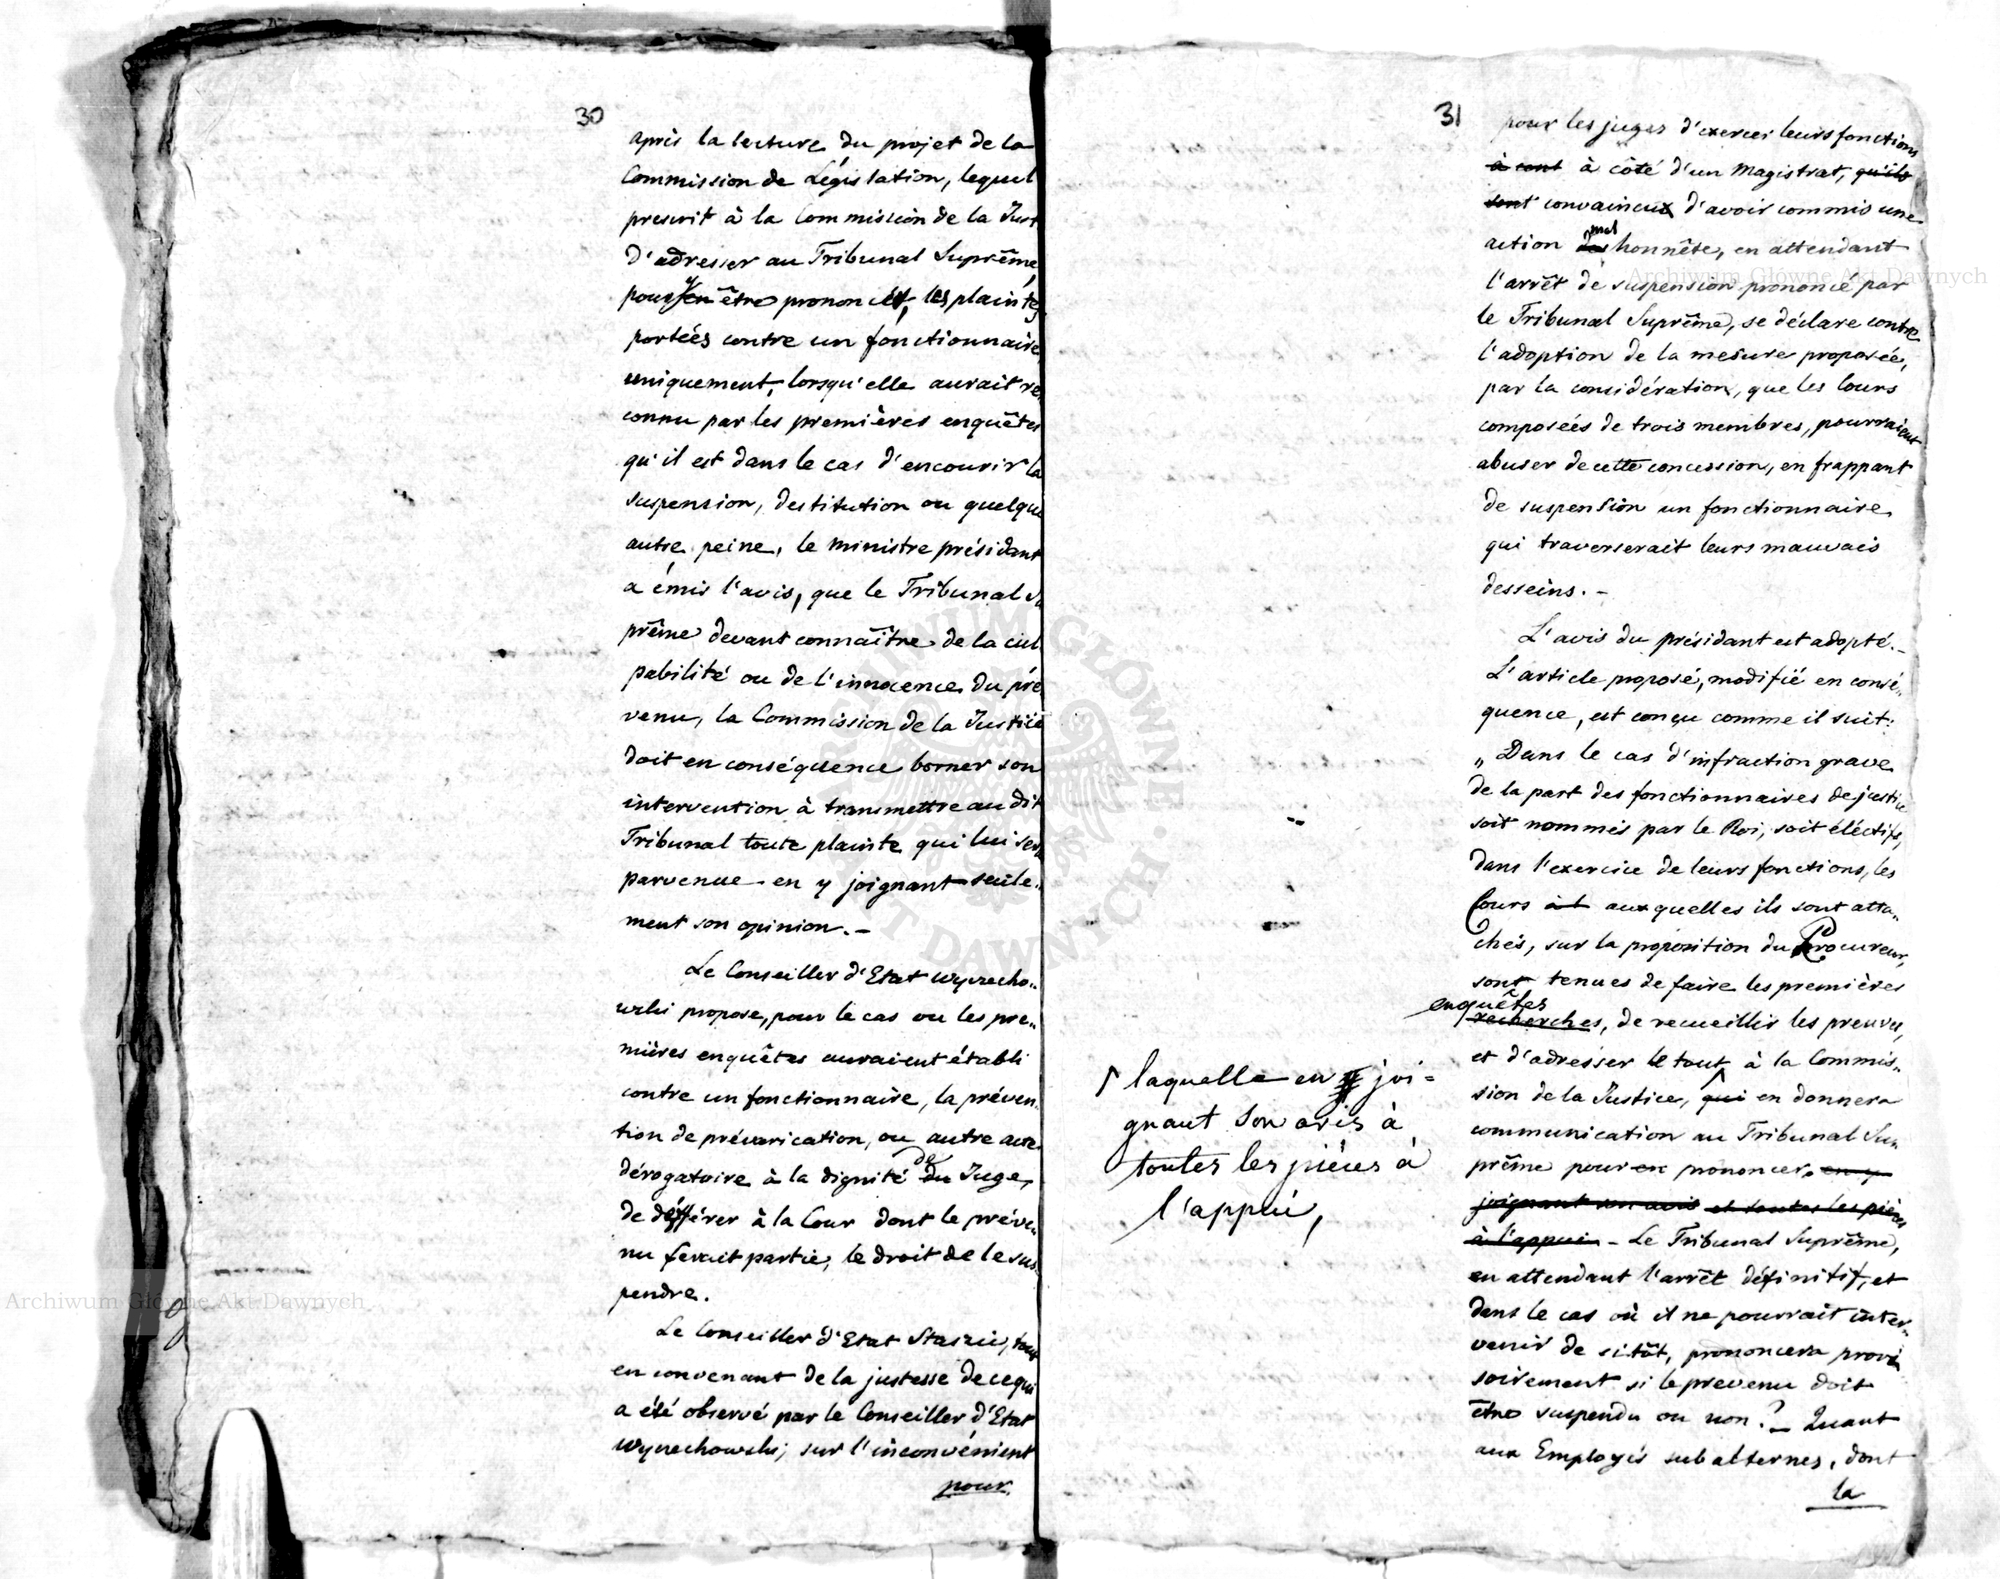 30
après la lecture du projet de la
Commission de Législation, lequel
prescrit à la Commission de la Just.
d'adresser au Tribunal Suprême,
pour y être prononcé, les plaintes
portées contre un fonctionnaire,
uniquement, lorsqu'elle aurait re,
connu par les premières enquêtes
qu'il est dans le cas d'encourir la
suspension, destitution ou quelque
autre peine, le ministre présidant
a émis l'avis, que le Tribunal Su
prême devant connaître de la cul
pabilité ou de l'innocence du pré
venu, la Commission de la Justice
doit en conséquence borner son
intervention à transmettre au dit
Tribunal toute plainte qui lui sera
parvenue en y joignant seule„
ment son opinion. –
Le Conseiller d'Etat Wyczecho„
wski propose, pour le cas ou les pre„
mières enquêtes auraient établi
contre un fonctionnaire, la préven„
tion de prévarication, ou autre acte
dérogatoire à la dignité de du Juge,
de déférer à la Cour dont le préve„
nu ferait partie, le droit de le sus„
pendre.
Le Conseiller d'Etat Staszic, tout
en convenant de la justesse de ce qui
a été observé par le Conseiller d'Etat
Wyczechowski; sur l'inconvénient
pour
31
pour les juges d'exercer leurs fonctions
à cont à côté d'un Magistrat, qu'ils
sont convaincux d'avoir commis une
action mal honnête, en attendant
l'arrêt de suspension prononcé par
le Tribunal Suprême, se déclare contre
l'adoption de la mesure proposée,
par la considération, que les Cours
composées de trois membres, pourraient
abuser de cette concession, en frappant
de suspension un fonctionnaire
qui traverserait leurs mauvais
desseins. –
L'avis du présidant est adopté. –
L'article proposé, modifié en consé„
quence, est conçu comme il suit:
„ Dans le cas d'infraction grave
de la part des fonctionnaires de justice
soit nommés par le Roi, soit éléctifs,
dans l'exercice de leurs fonctions, les
Cours à l auxquelles ils sont atta„
chés, sur la proposition du Procureur,
sont tenues de faire les premières
enquêtes
recherches, de recueillir les preuves,
et d'adresser le tout à la Commis„
sion de la Justice, qui en donnera
communication au Tribunal Su„
prême pour en prononcer, en y
joignant son avis et toutes les pièces
à l'appui – Le Tribunal Suprême,
en attendant l'arrêt définitif, et
dans le cas où il ne pourrait inter„
venir de sitôt, prononcera provi
soirement si le prevenu doit
être suspendu ou non? – Quant
aux Employés subalternes, dont
la
laquelle en joi=
gnant son avis à
toutes les pièces à
l'appui,
Archiwum Główne Akt Dawnych
Archiwum Główne Akt Dawnych
ARCHIWUM GŁÓWNE AKT DAWNYCH